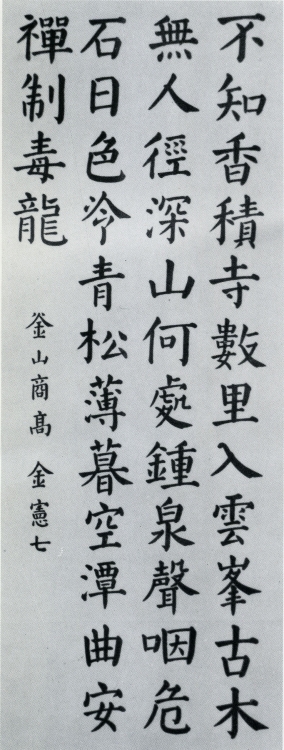 不知香積寺數里入雲峯古木
無人徑深山何處鍾泉聲咽危
石日色冷青松薄暮空潭曲安
禪制毒龍
釜山商高 金憲七